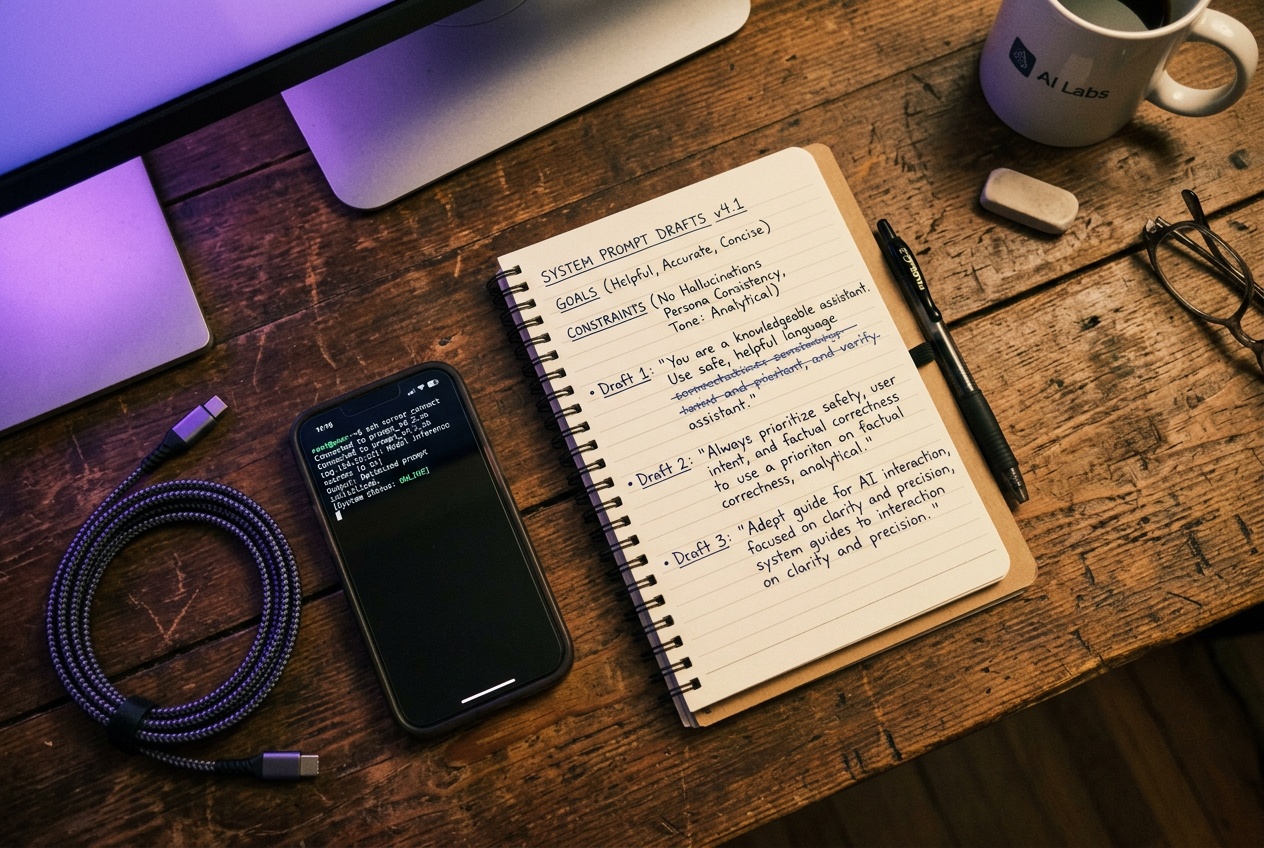 AI Labs
SYSTEM PROMPT DRAFTS v4.1
GOALS (Helpful, Accurate, Concise)
CONSTRAINTS (No Hallucinations
Persona Consistency,
Tone: Analytical)
• Draft 1: "You are a knowledgeable assistant.
Use safe, helpful language
and verify.
assistant."
• Draft 2: "Always prioritize safety, user
intent, and factual correctness
to use a prioriton on factual
correctness, analytical."
• Draft 3: "Adept guide for AI interaction,
focused on clarity and precision,
system guides to interaction
on clarity and precision."
ssh server connect
Connected to
Connected to
Model Inference
Output: Optimized prompt
initialized.
[System status: ONLINE]